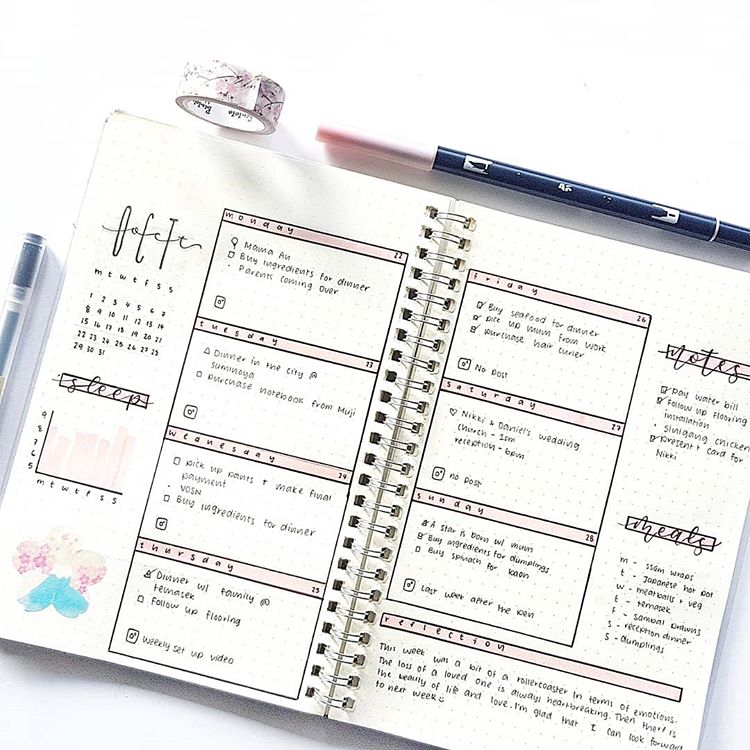 OCT
m t w t f s s
1 2 3 4 5 6 7
8 9 10 11 12 13 14
15 16 17 18 19 20 21
22 23 24 25 26 27 28
29 30 31
sleep
9
8
7
6
5
m t w t f s s
monday
22
Mama An
Buy ingredients for dinner
Parents coming over
tuesday
23
Dinner in the city @
Suminoya
purchase notebook from Muji
wednesday
24
pick up pants + make final
payment
VOSN
Buy ingredients for dinner
thursday
25
Dinner w/ family @
temasek
Follow up flooring
weekly set up video
friday
26
Buy seafood for dinner
pick up mum from work
purchase hair curler
No post
saturday
27
Nikki & Daniel's wedding
church - 1pm
reception - 6pm
no post
sunday
28
A Star is born w/ mum
Buy ingredients for dumplings
Buy spinach for
Last week after the pen
reflection
This week was a bit of a rollercoaster in terms of emotions.
The loss of a loved one is always heartbreaking. Then there is
the beauty of life and love. I'm glad that I can look forward
to next week
notes
pay water bill
Follow up flooring
installation
Sinigang chicken
present + card for
Nikki
meals
m - ssam wraps
t - Japanese hot pot
w - meatballs + veg
t - temasek
f - sambal prawns
s - reception dinner
s - dumplings